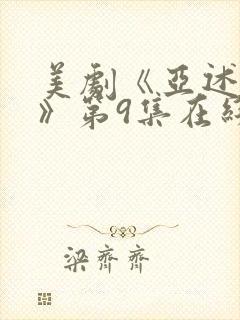 美劇《亞述
》第9集在線
梁齊齊